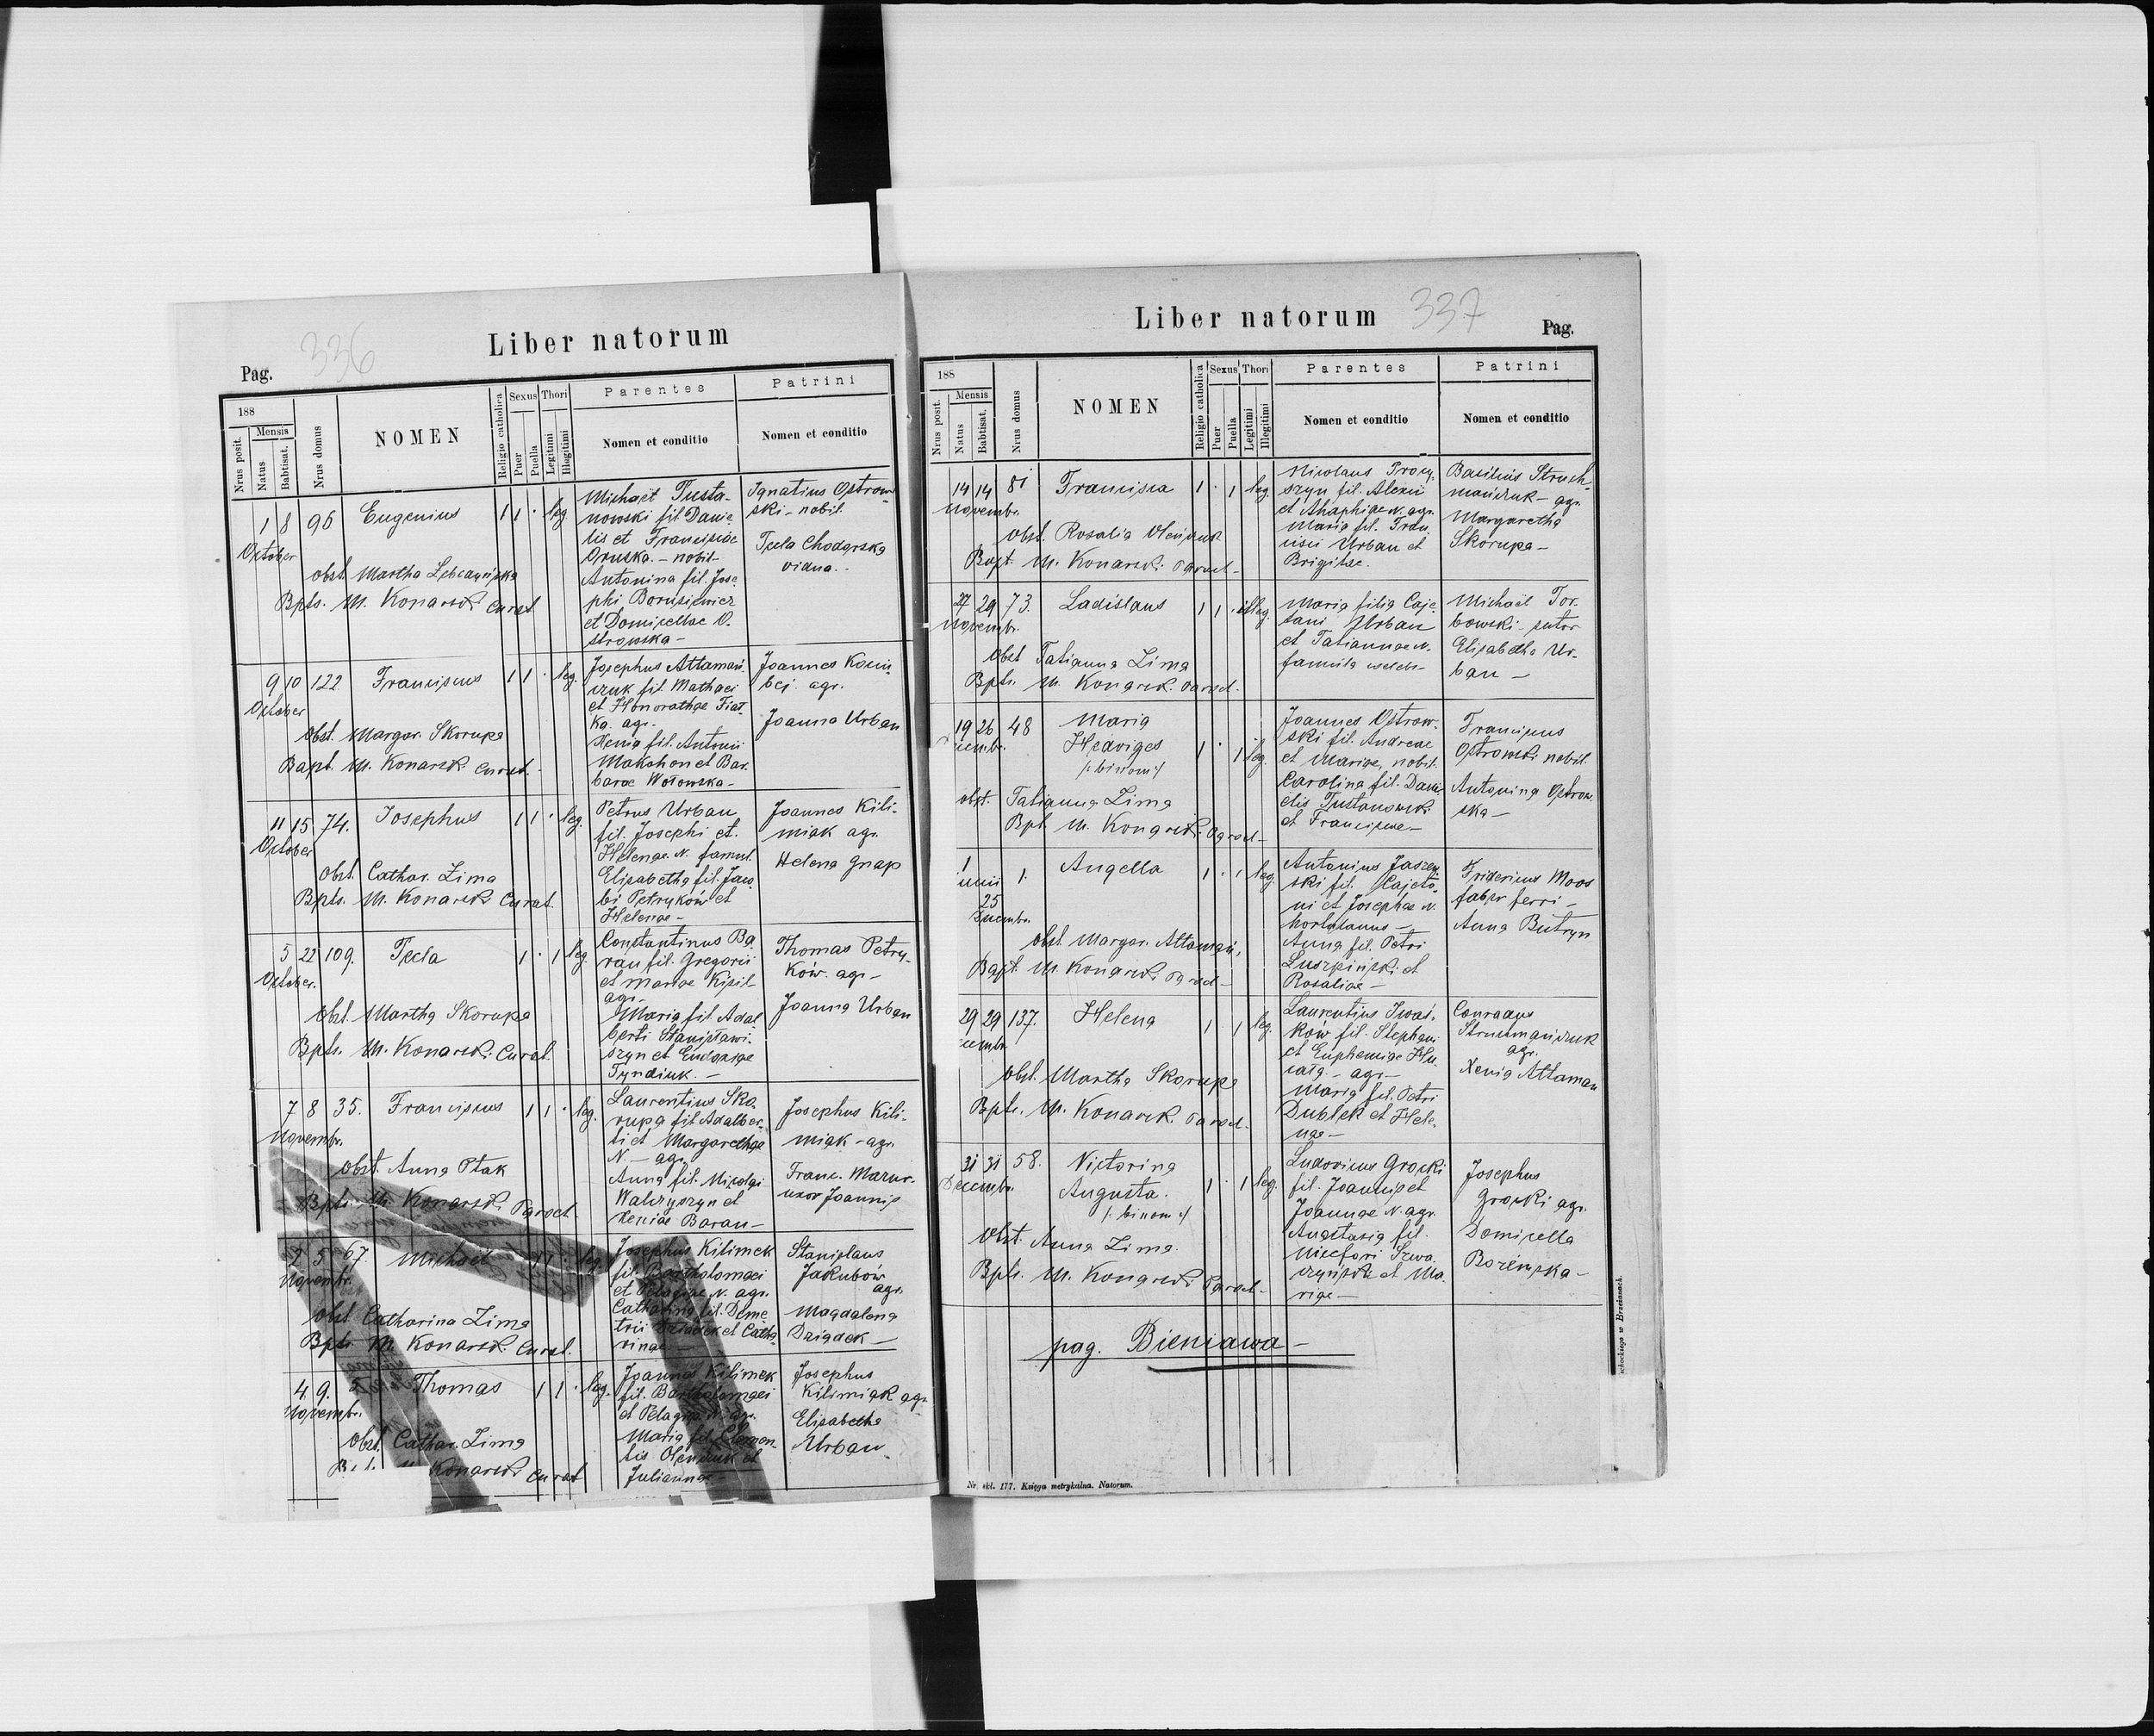 336
Liber natorum
Pag.
188
Nrus posit.
Mensis
Natus
Babtisat.
Nrus domus
NOMEN
Religio catholica
Sexus
Puer
Puella
Thori
Legitimi
Illegitimi
Parentes
Nomen et conditio
Patrini
Nomen et conditio
1 8 96 Eugenius 1 1 · leg
October
obst. Martha
Bpts. M. Konarski Curat
Michael Tusta-
nowski fil. Danie-
lis et Franciscae
Oruska. - nobil
Antonina fil. Jose-
phi Borusiewicz
et Domicellae O-
strowska -
Ignatius Ostrow-
ski - nobil.
Tecla Chodorska
vidua. -
9 10 122 Franciscus 1 1 · leg.
October
Obst. Margar. Skorupa
Bapt. M. Konarski Curat. -
Josephus Attamań-
czuk fil. Mathaei
et Honorathae Fiał-
ka. agr.
Xenia fil. Antonii
Makohon et Bar-
barae Wołowska -
Joannes
bej. agr.
Joanna Urban
11 15 74. Josephus 1 1 · leg.
October
Obst. Cathar. Zima
Bpts. M. Konarski Curat.
Petrus Urban
fil. Josephi et
Helenae N. famul.
Elisabetha fil. Jaco-
bi Petryków et
Helenae -
Joannes Kili-
miak agr.
Helena Gnap
5 22 109. Tecla 1 · 1 leg.
October.
Obst. Martha Skorupa
Bpts. M. Konarski Curat.
Constantinus Ba-
ran fil. Gregorii
et Mariae Kisil
agr -
Maria fil. Adal-
berti Stanisławi-
szyn et Eudoxiae
Tyndiuk. -
Thomas Petry-
ków. agr -
Joanna Urban
7 8 35. Franciscus 1 1 · leg.
Novembr.
Obst. Anna Ptak
Bpts. M. Konarski Paroch
Laurentius Sko-
rupa fil. Adalber-
ti et Margarethae
N. - agr.
Anna fil. Nicolai
Walczyszyn et
Xeniae Baran -
Josephus Kili-
miak - agr.
Franc. Mazur.
uxor Joannis
2 5 67. Michael 1 1 · leg.
Novembr.
Obst Catharina Zima
Bpts. M. Konarski Curat.
Josephus Kilimek
fil. Bartholomaei
et Pelagiae N. agr.
Catharina fil. Deme-
trii Dziadek et Catha-
rinae -
Stanislaus
Jakubów
agr.
Magdalena
Dziadek -
4 9. Thomas 1 1 · leg.
Novembr.
Obst. Cathar. Zima
Konarski Curat
Joannes Kilimek
fil. Bartholomaei
et Pelagiae N. agr.
Maria fil. Clemen-
tis Oleńczuk et
Julianna -
Josephus
Kilimiak agr.
Elisabetha
Urban
Liber natorum
337
Pag.
188
Nrus posit.
Mensis
Natus
Babtisat.
Nrus domus
NOMEN
Religio catholica
Sexus
Puer
Puella
Thori
Legitimi
Illegitimi
Parentes
Nomen et conditio
Patrini
Nomen et conditio
14 14 81 Francisca 1 · 1 leg.
Novembr.
obst. Rosalia Oleńczuk
Bapt. M. Konarski Paroch -
Nicolaus Procy-
szyn fil. Alexii
et Ahaphiae N. agr.
Maria fil. Fran-
cisci Urban et
Brigitae.
Basilius Struch-
mańczuk - agr.
Margaretha
Skorupa -
27 29 73. Ladislaus 1 1 · illeg.
Novembr.
Obst Tatianna Zima
Bpts. M. Konarski Paroch.
Maria filia Caje-
tani Urban
et Tatiannae N.
famula
Michael Tor-
bowski - sutor
Elisabetha Ur-
ban -
19 26 48 Maria
Hedviges
/: binom :/
1 · 1 leg.
obst. Tatianna Zima
Bpt. M. Konarski Paroch -
Joannes Ostrow-
ski fil. Andreae
et Mariae, nobil.
Carolina fil. Dani-
elis Tustanowski
et Franciscae -
Franciscus
Ostrowski nobil.
Antonina Ostrow-
ska -
1 1. Angella 1 · 1 leg.
25
Obst Margar. Attamań,
Bapt. M. Konarski Paroch -
Antonius
ski fil. Cajeta-
ni et Josephae N.
hortulanus -
Anna fil. Petri
et
Rosaliae -
Fridericus Moos
faber ferri -
Anna Butryn
29 29 137. Helena 1 1 leg.
Obst. Martha Skorupa
Bpts. M. Konarski Paroch.
Laurentius Iwaś-
ków fil. Stephani
et Euphemiae Hu-
cała - agr -
Maria fil. Petri
Dublek et Hele-
nae -
Conradus
Struchmańczuk
agr.
Xenia Attaman
31 31 58. Victorina
Augusta.
/: binom :/
1 · 1 leg.
Decembr.
Obst. Anna Zima.
Bpts. M. Konarski Paroch -
Ludovicus Grocki
fil. Joannis et
Joannae N. agr.
Anastasia fil.
Nicefori Szwa-
czyński et Ma-
riae -
Josephus
Grocki agr.
Domicella
pag. Bieniawa -
Nr. skł. 177. Księga metrykalna. Natorum.
w Brzeżanach.